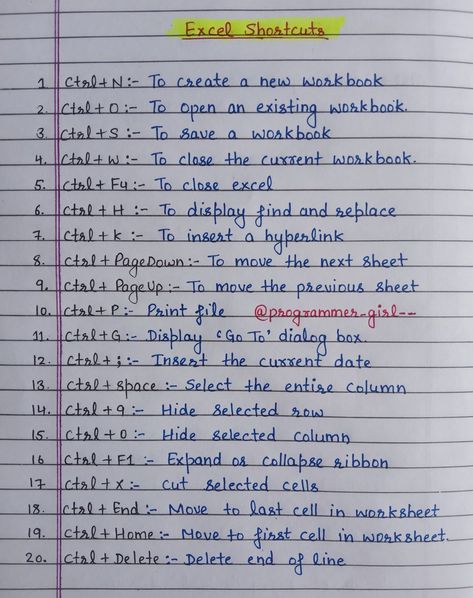 Excel Shortcuts
1. Ctrl+N:- To create a new workbook
2. Ctrl+O:- To open an existing workbook.
3. Ctrl+S:- To save a workbook
4. Ctrl+W:- To close the current workbook.
5. Ctrl+F4:- To close excel
6. Ctrl+H:- To display find and replace
7. Ctrl+k:- To insert a hyperlink
8. Ctrl+PageDown:- To move the next sheet
9. Ctrl+PageUp:- To move the previous sheet
10. Ctrl+P:- Print file @programmer-girl--
11. Ctrl+G:- Display 'Go To' dialog box.
12. Ctrl+;:- Insert the current date
13. Ctrl+space:- Select the entire column
14. Ctrl+9:- Hide selected row
15. Ctrl+0:- Hide selected column
16 Ctrl+F1:- Expand or collapse ribbon
17 Ctrl+x:- cut selected cells
18. Ctrl+End:- Move to last cell in worksheet
19. Ctrl+Home:- Move to first cell in worksheet.
20. Ctrl+Delete:- Delete end of line